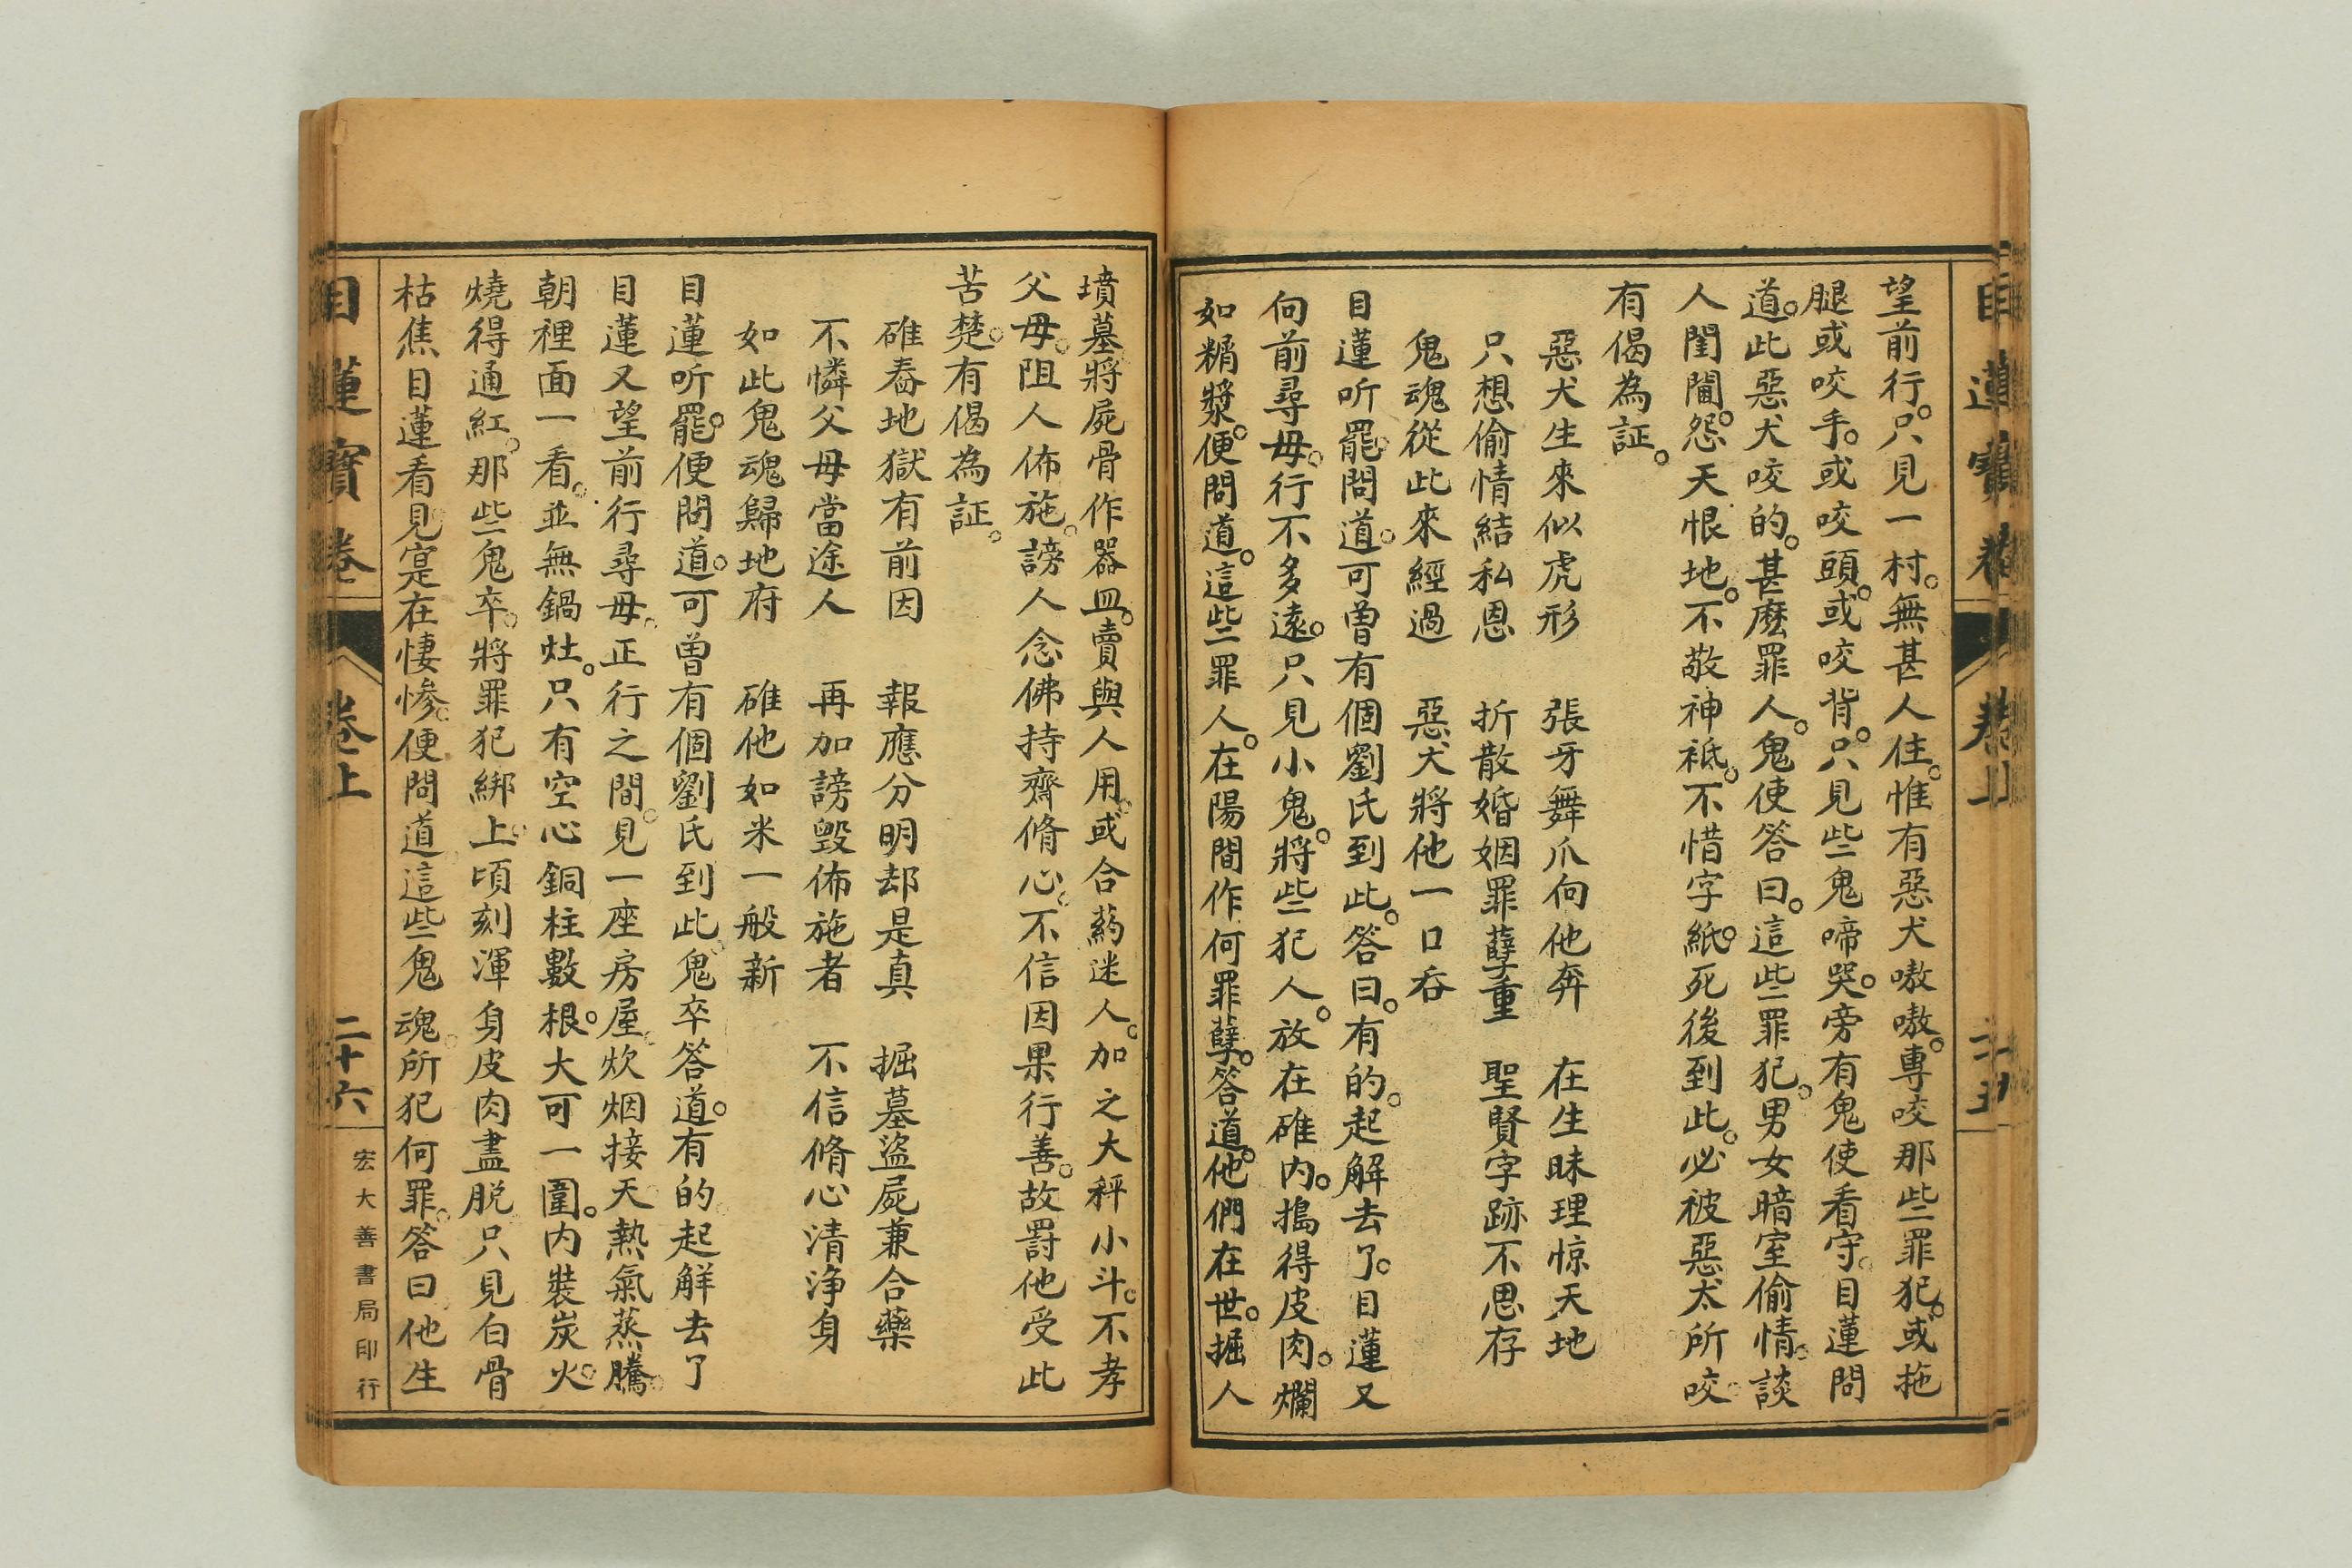 目蓮寶卷 卷上 二十五
望前行。只見一村。無甚人住。惟有惡犬嗷嗷。專咬那些罪犯。或拖
腿或咬手。或咬頭。或咬背。只見些鬼啼哭。旁有鬼使看守。目蓮問
道。此惡犬咬的。甚麽罪人。鬼使答曰。這些罪犯。男女暗室偷情。談
人閨閫。怨天恨地。不敬神祗。不惜字紙。死後到此。必被惡犬所咬。
有偈為証。
惡犬生來似虎形　張牙舞爪向他奔　在生昧理惊天地
只想偷情結私恩　折散婚姻罪孽重　聖賢字跡不思存
鬼魂從此來經過　惡犬將他一口吞
目蓮听罷。問道。可曾有個劉氏到此。答曰。有的。起解去了。目蓮又
向前尋母。行不多遠。只見小鬼。將些犯人。放在碓內。搗得皮肉。爛
如糈漿。便問道。這些罪人。在陽間作何罪孽。答道。他們在世。掘人
墳墓將屍骨作器皿。賣與人用。或合葯迷人。加之大秤小斗。不孝
父母。阻人佈施。謗人念佛持齋脩心。不信因果行善。故罸他受此
苦楚。有偈為証。
碓舂地獄有前因　報應分明却是真　掘墓盜屍兼合藥
不憐父母當途人　再加謗毀佈施者　不信脩心清浄身
如此鬼魂歸地府　碓他如米一般新
目蓮听罷。便問道。可曾有個劉氏到此。鬼卒答道。有的起解去了
目蓮又望前行尋母。正行之間。見一座房屋。炊烟接天。熱氣蒸騰。
朝裡面一看。並無鍋灶。只有空心銅柱數根。大可一圍。内裝炭火。
燒得通紅。那些鬼卒。將罪犯綁上。頃刻渾身皮肉盡脱只見白骨
枯焦目蓮看見寔在悽慘。便問道。這些鬼魂。所犯何罪。答曰他生
目蓮寶卷 卷上 二十六 宏大善書局印行